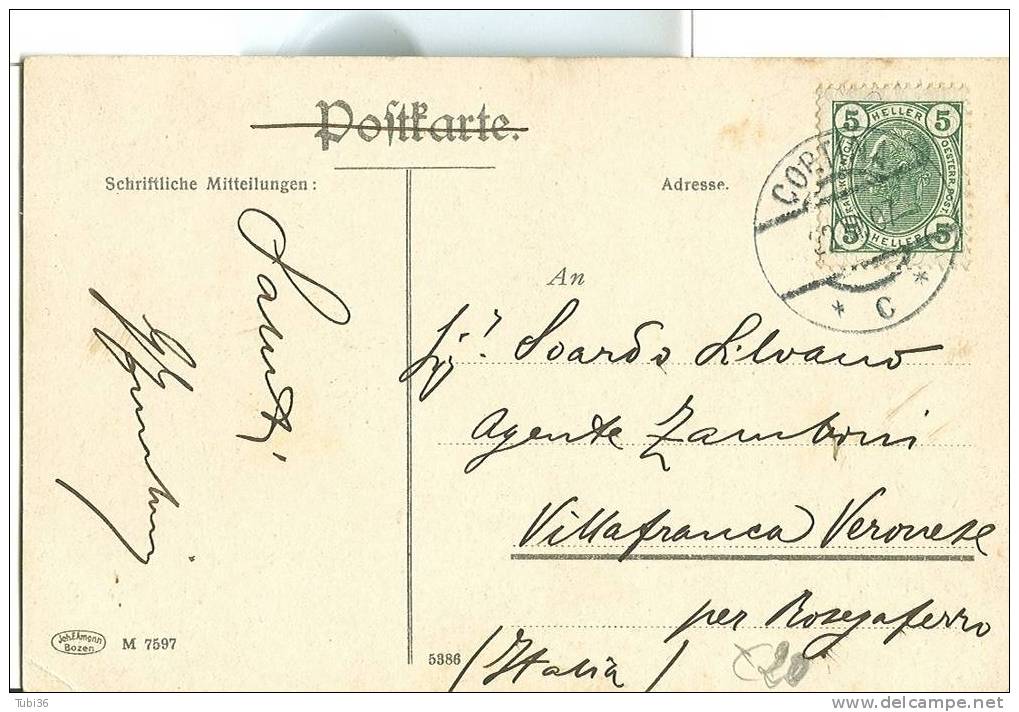 Postkarte.
Schriftliche Mitteilungen:
Adresse.
5 HELLER 5
5 HELLER 5
CORTINA
* C *
Saluti
An
Sig.r Soardo Silvano
Agente Zamboni
Villafranca Veronese
per Rosegaferro
(Italia)
20
Joh. F. Amonn
Bozen
M 7597
5386
Tubi36
delcampe.net